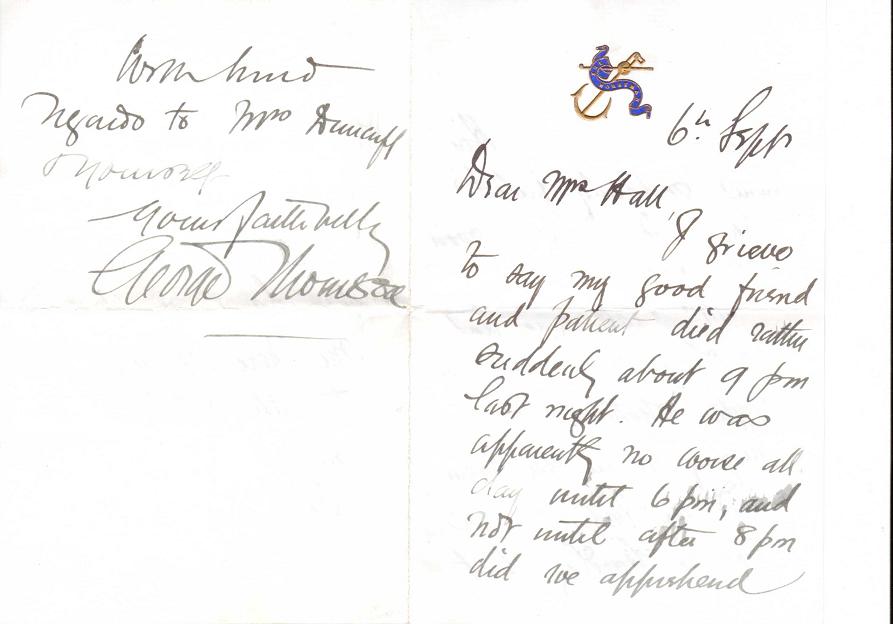 6th Sept
Dear Mrs Hall,
I grieve
to say my good friend
and patient died rather
suddenly about 9 pm
last night. He was
apparently no worse all
day until 6 pm, and
not until after 8 pm
did we apprehend
With kind
regards to Mrs
Yours faithfully
George Thomson